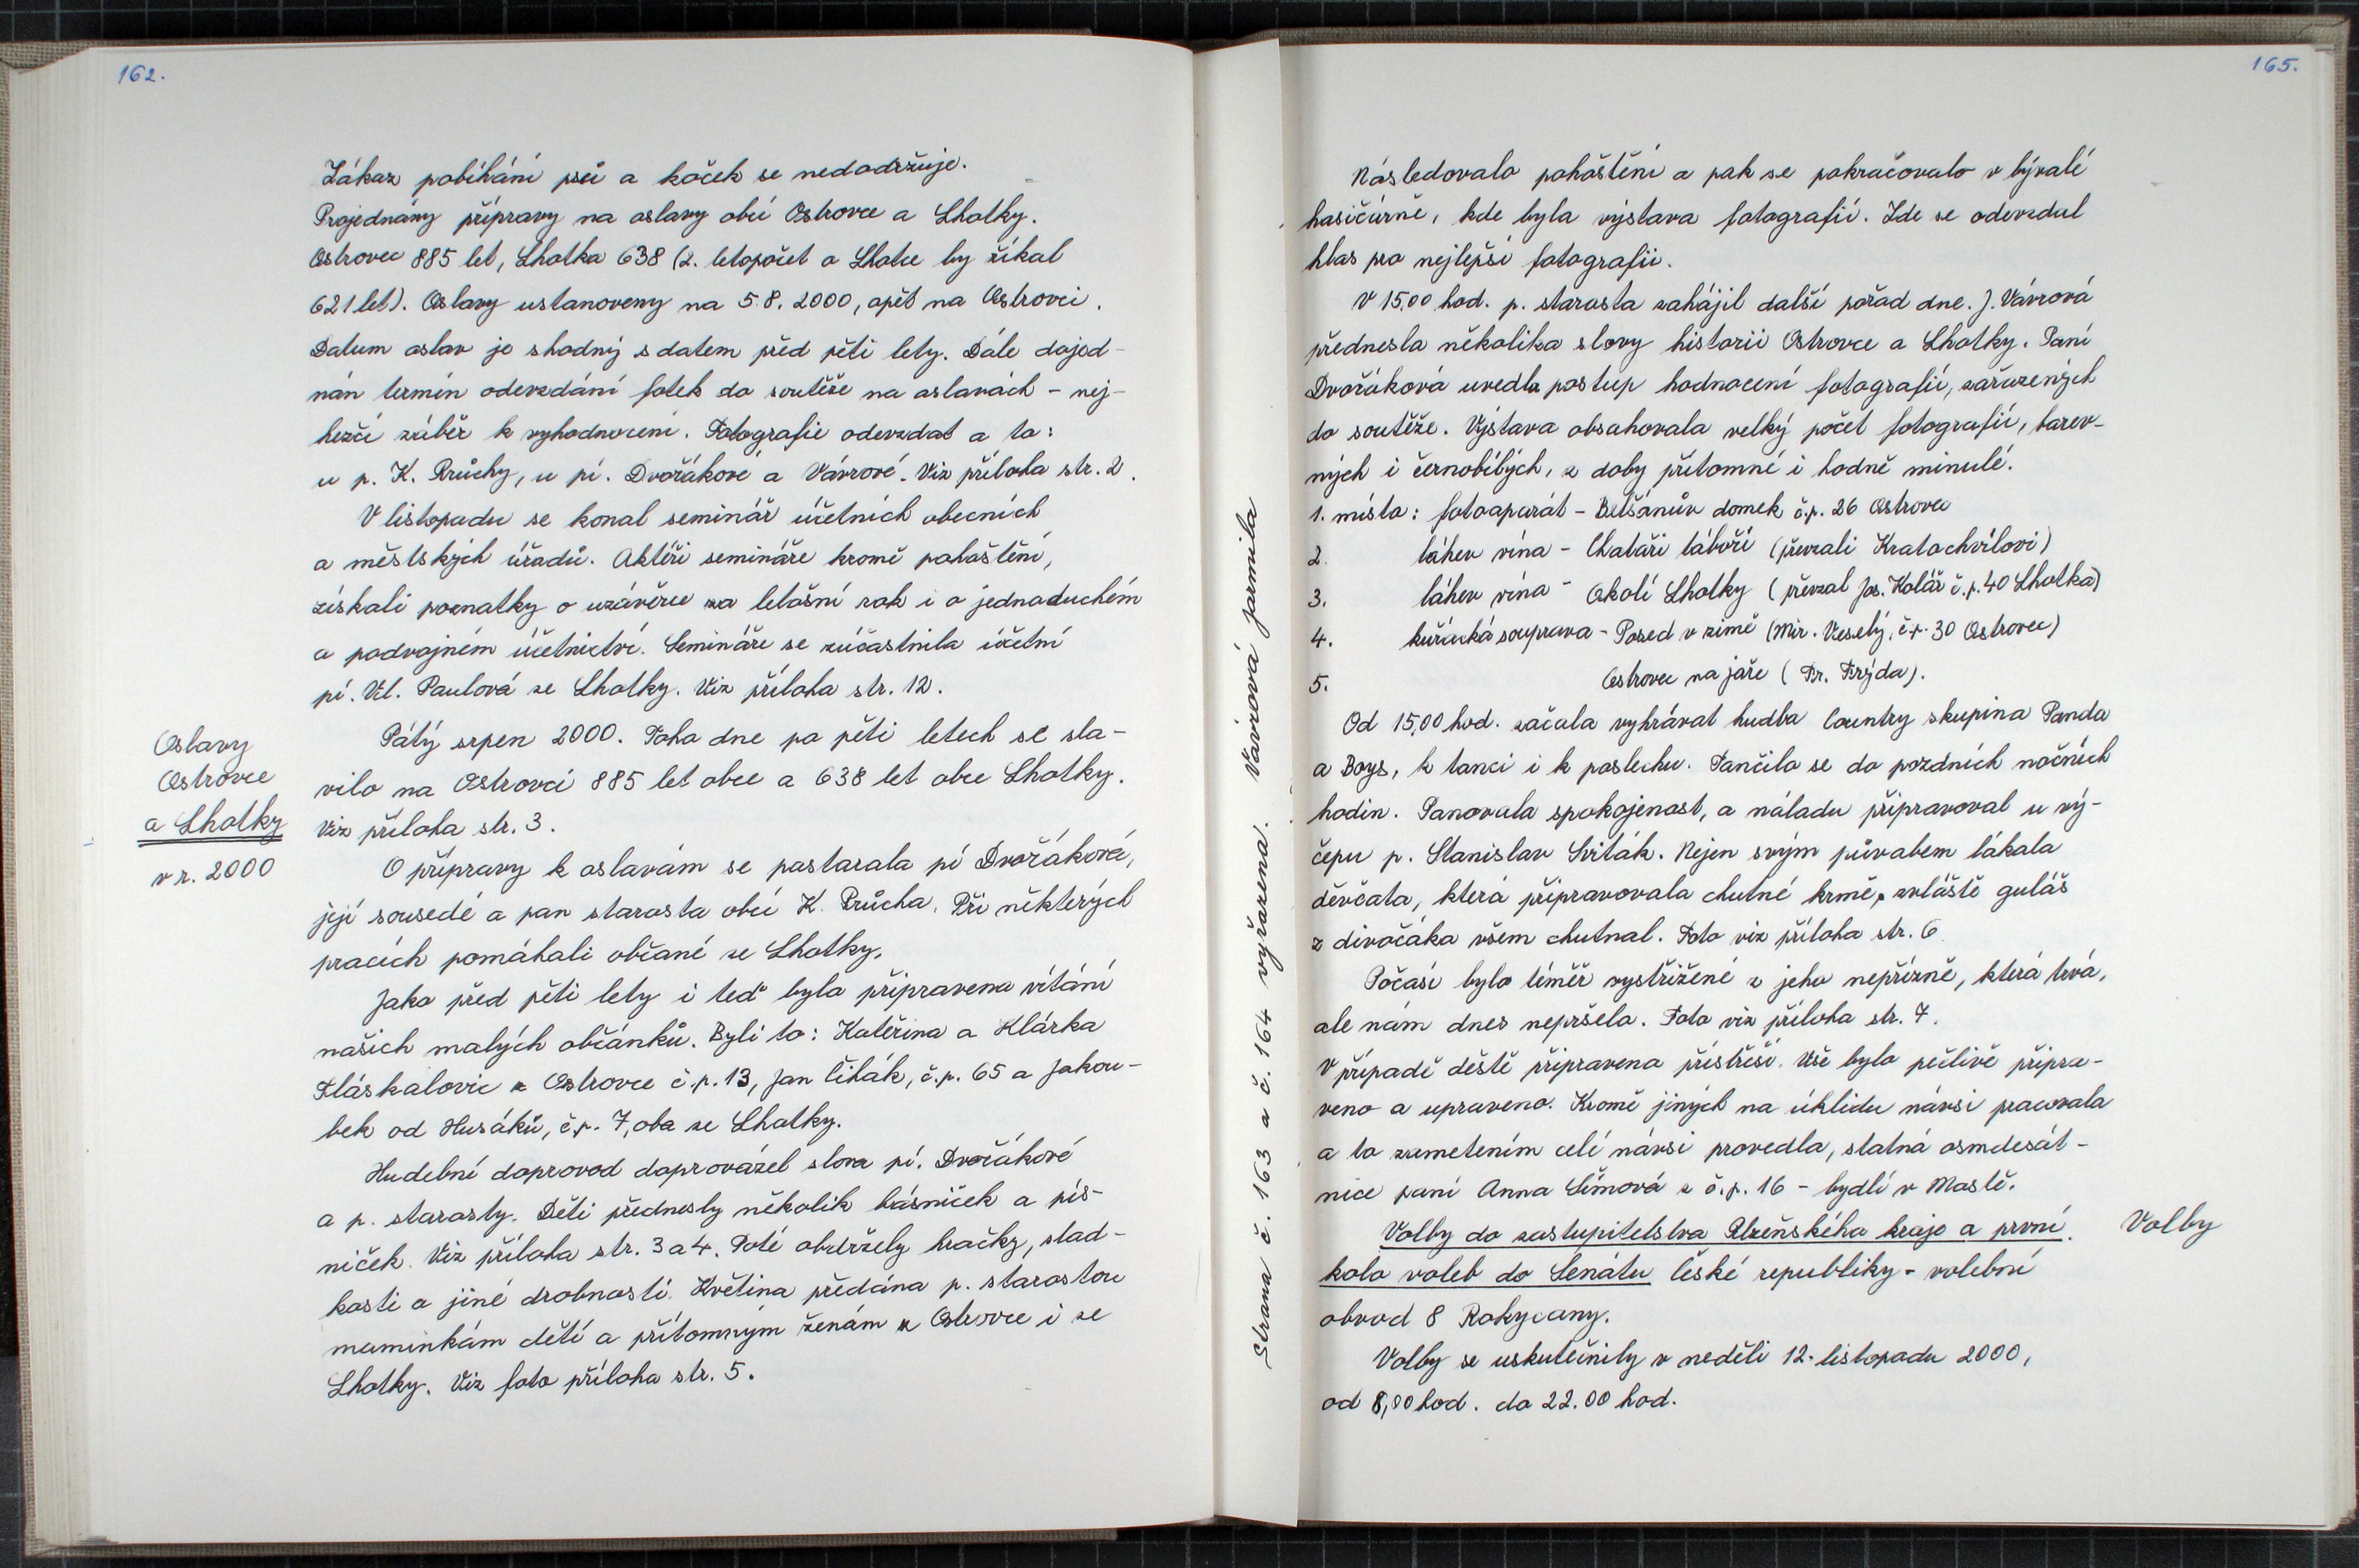 162.
Zákaz pobíhání psů a koček se nedodržuje.
Projednány přípravy na oslavy obcí Ostrovce a Lhotky.
Ostrovec 885 let, Lhotka 638 (2. letopočet o Lhotce by říkal
621 let). Oslavy ustanoveny na 5.8. 2000, opět na Ostrovci.
Datum oslav je shodný s datem před pěti lety. Dále dojed-
nán termín odevzdání fotek do soutěže na oslavách - nej-
hezčí záběr k vyhodnocení. Fotografie odevzdat a to:
u p. K. Průchy, u pí. Dvořákové a Vávrové. Viz příloha str. 2.
V listopadu se konal seminář účetních obecních
a městských úřadů. Aktéři semináře kromě pohoštění,
získali poznatky o uzávěrce za letošní rok i o jednoduchém
a podvojném účetnictví. Semináře se zúčastnila účetní
pí. Vl. Paulová ze Lhotky. Viz příloha str. 12.
Oslavy
Ostrovce
a Lhotky
v r. 2000
Pátý srpen 2000. Toho dne po pěti letech se sla-
vilo na Ostrovci 885 let obce a 638 let obce Lhotky.
Viz příloha str. 3.
O přípravy k oslavám se postarala pí Dvořáková,
její sousedé a pan starosta obcí K. Průcha. Při některých
pracích pomáhali občané ze Lhotky.
Jako před pěti lety i teď bylo připraveno vítání
našich malých občánků. Byli to: Kateřina a Klárka
Fláskalovic z Ostrovce č.p. 13, Jan Cihák, č.p. 65 a Jakou-
bek od Husáků, č.p. 7, oba ze Lhotky.
Hudební doprovod doprovázel slova pí. Dvořákové
a p. starosty. Děti přednesly několik básniček a pís-
niček. Viz příloha str. 3 a 4. Poté obdržely hračky, slad-
kosti a jiné drobnosti. Květina předána p. starostou
maminkám dětí a přítomným ženám z Ostrovce i ze
Lhotky. Viz foto příloha str. 5.
Strana č. 163 a č. 164 vyřazena. Vávrová Jarmila
165.
Následovalo pohoštění a pak se pokračovalo v bývalé
hasičárně, kde byla výstava fotografií. Zde se odevzdal
hlas pro nejlepší fotografii.
V 15,00 hod. p. starosta zahájil další pořad dne. J. Vávrová
přednesla několika slovy historii Ostrovce a Lhotky. Paní
Dvořáková uvedla postup hodnocení fotografií, zařazených
do soutěže. Výstava obsahovala velký počet fotografií, barev-
ných i černobílých, z doby přítomné i hodně minulé.
1. místo: fotoaparát - Belšánův domek č.p. 26 Ostrovec
2. láhev vína - Chataři táboří (převzali Kratochvílovi)
3. láhev vína - Okolí Lhotky (převzal Jos. Kolář č.p. 40 Lhotka)
4. kuřácká souprava - Posed v zimě (Mir. Veselý, č.p. 30 Ostrovec)
5. Ostrovec na jaře (Fr. Frýda).
Od 15,00 hod. začala vyhrávat hudba Country skupina Panda
a Boys, k tanci i k poslechu. Tančilo se do pozdních nočních
hodin. Panovala spokojenost, a náladu připravoval u vý-
čepu p. Stanislav Sviták. Nejen svým půvabem lákala
děvčata, která připravovala chutné krmě, zvláště guláš
z divočáka všem chutnal. Foto viz příloha str. 6
Počasí bylo téměř vystřižené z jeho nepřízně, která trvá,
ale nám dnes nepršelo. Foto viz příloha str. 7.
V případě deště připravena přístřeší. Vše bylo pečlivě připra-
veno a upraveno. Kromě jiných na úklidu návsi pracovala
a to zametením celé návsi provedla, statná osmdesát-
nice paní Anna Šímová z č.p. 16 - bydlí v Mostě.
Volby do zastupitelstva Plzeňského kraje a první
Volby
kolo voleb do Senátu České republiky - volební
obvod 8 Rokycany.
Volby se uskutečnily v neděli 12. listopadu 2000,
od 8,00 hod. do 22.00 hod.